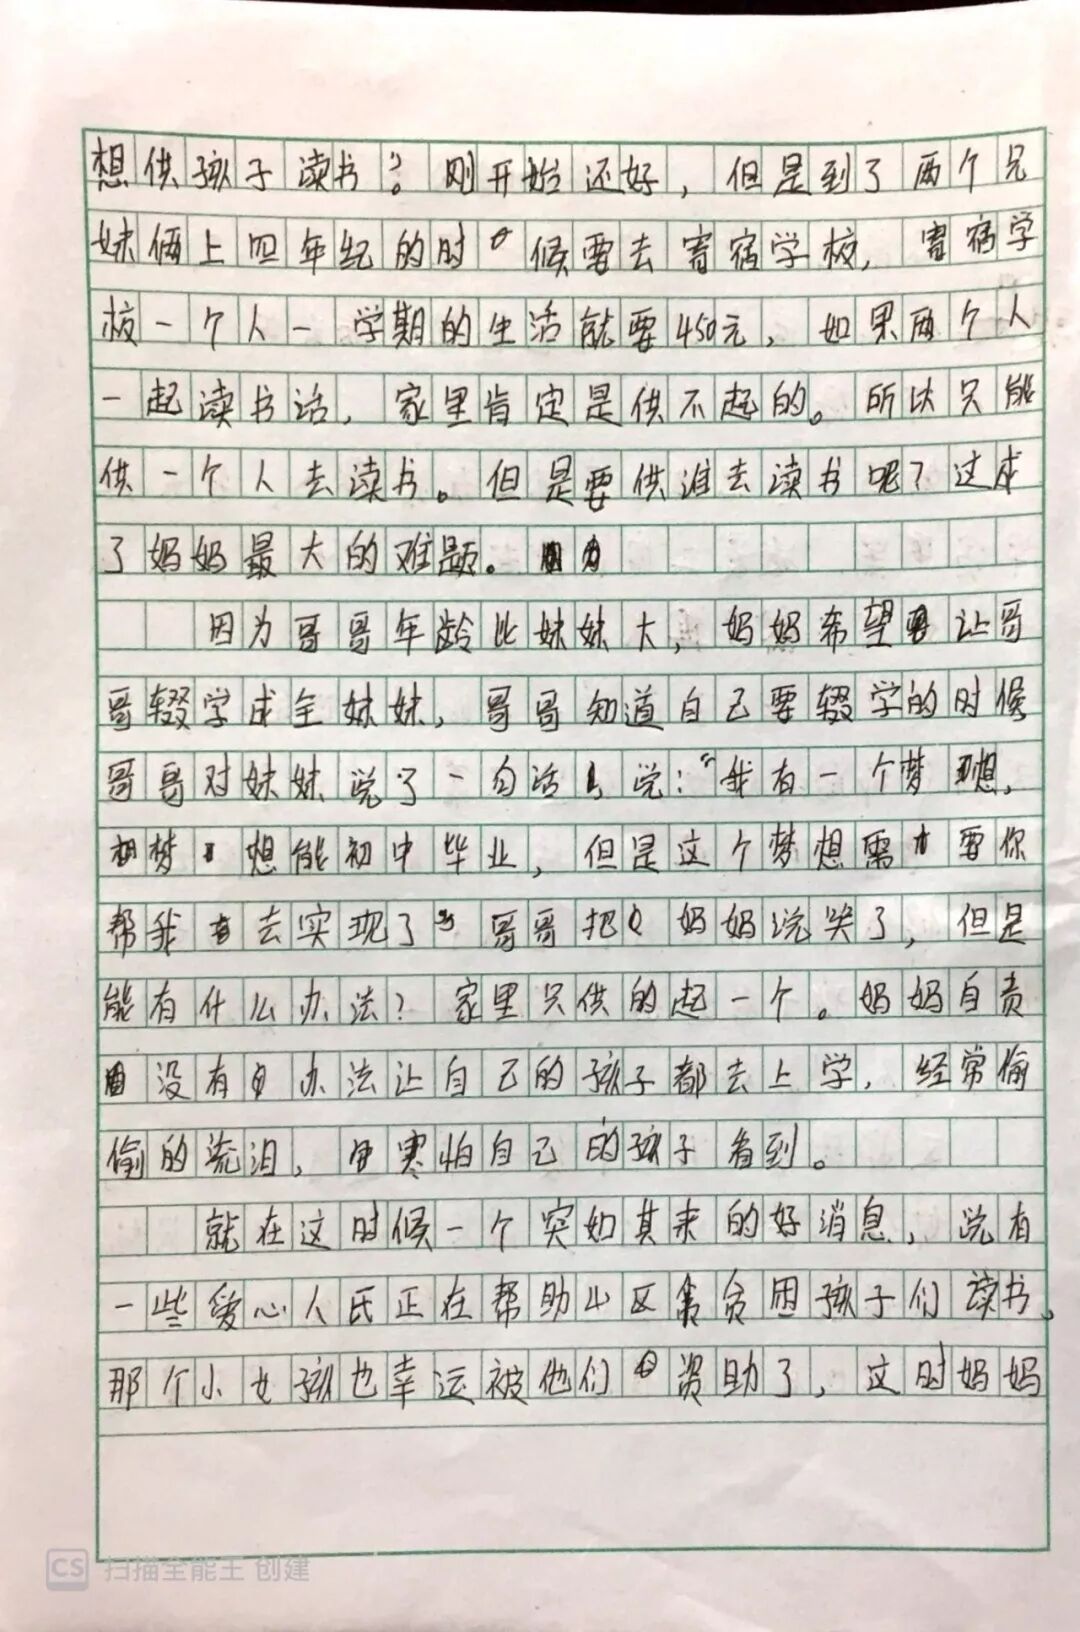 想供孩子读书？。刚开始还好，但是到了两个兄
妹俩上四年纪的时候要去寄宿学校，寄宿学
校一个人一学期的生活就要450元，如果两个人
一起读书话，家里肯定是供不起的。所以只能
供一个人去读书。但是要供谁去读书呢？这成
了妈妈最大的难题。
因为哥哥年龄比妹妹大，妈妈希望让哥
哥辍学成全妹妹，哥哥知道自己要辍学的时候
哥哥对妹妹说了一句话说：“我有一个梦想，
梦想能初中毕业，但是这个梦想需要你
帮我去实现了”哥哥把妈妈说哭了，但是
能有什么办法？家里只供的起一个。妈妈自责
没有办法让自己的孩子都去上学，经常偷
偷的流泪，害怕自己的孩子看到。
就在这时候一个突如其来的好消息，说有
一些爱心人民正在帮助山区贫困孩子们读书、
那个小女孩也幸运被他们资助了，这时妈妈
CS 扫描全能王 创建